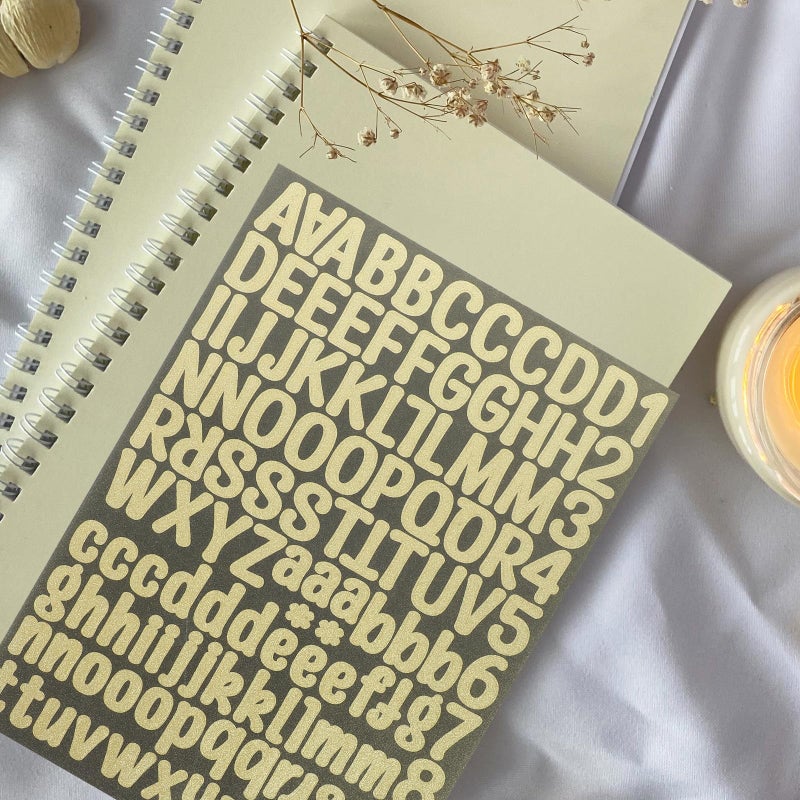 AAABBCCCDD1
DEEEFFGGHH2
IIJJKKLLMM3
NNOOOPQQR4
RRSSSSTTTUV5
WXYZaaabbb6
cccddde**eeffg7
ghhiijjkkllmm8
nnooopqqrrs
ttuvwxy